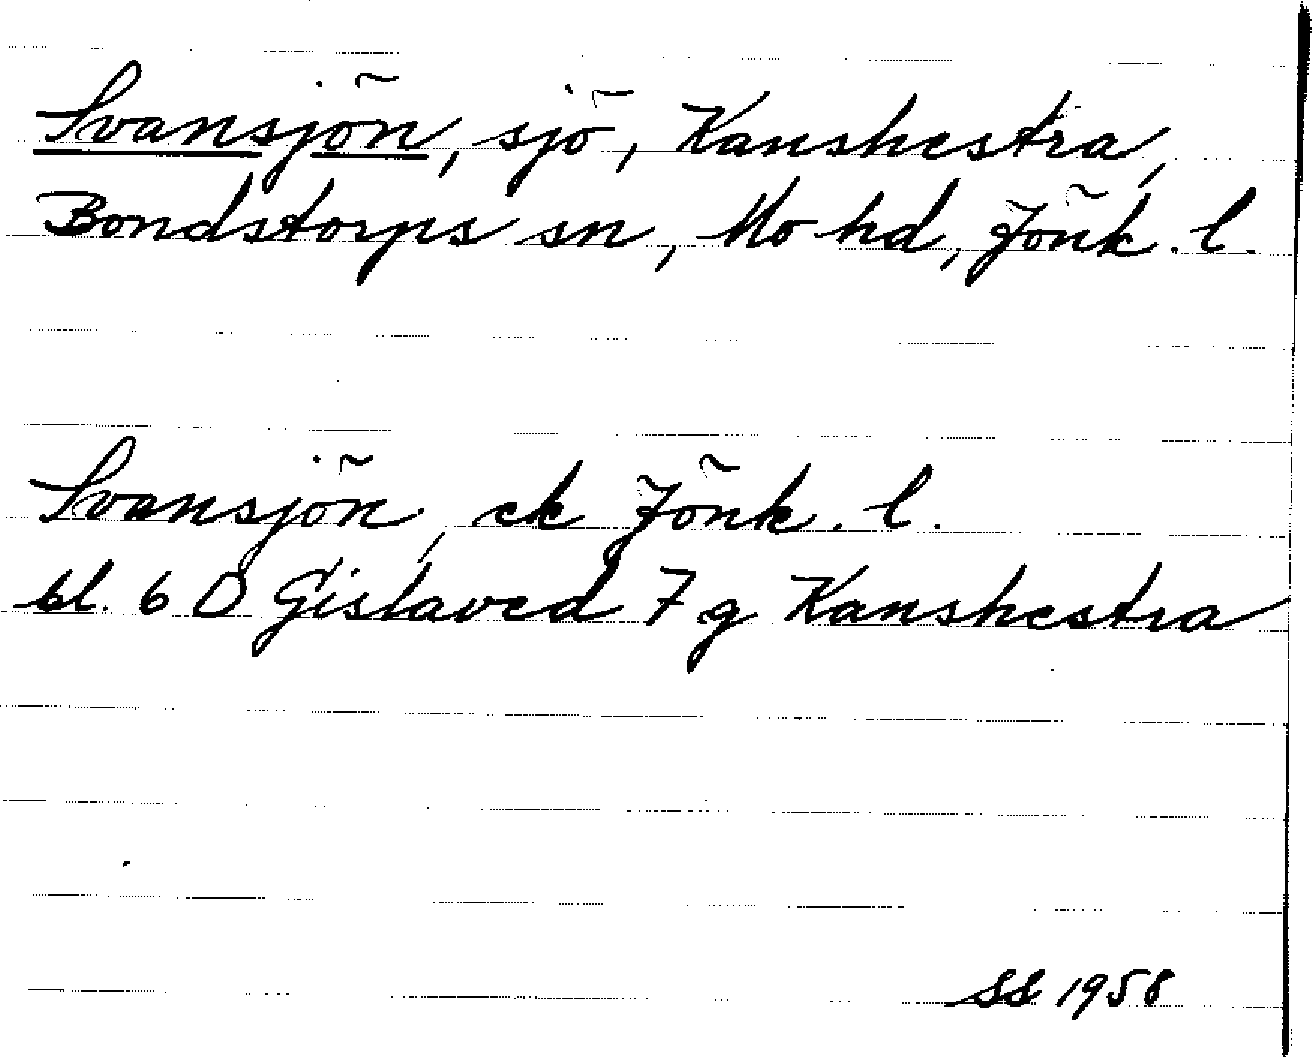 Svansjön, sjö, Kanshestra,
Bondstorps sn, Mo hd, Jönk. l.
Svansjön, ek Jönk. l.
bl. 6 D Gislaved 7 g Kanshestra
SS 1958